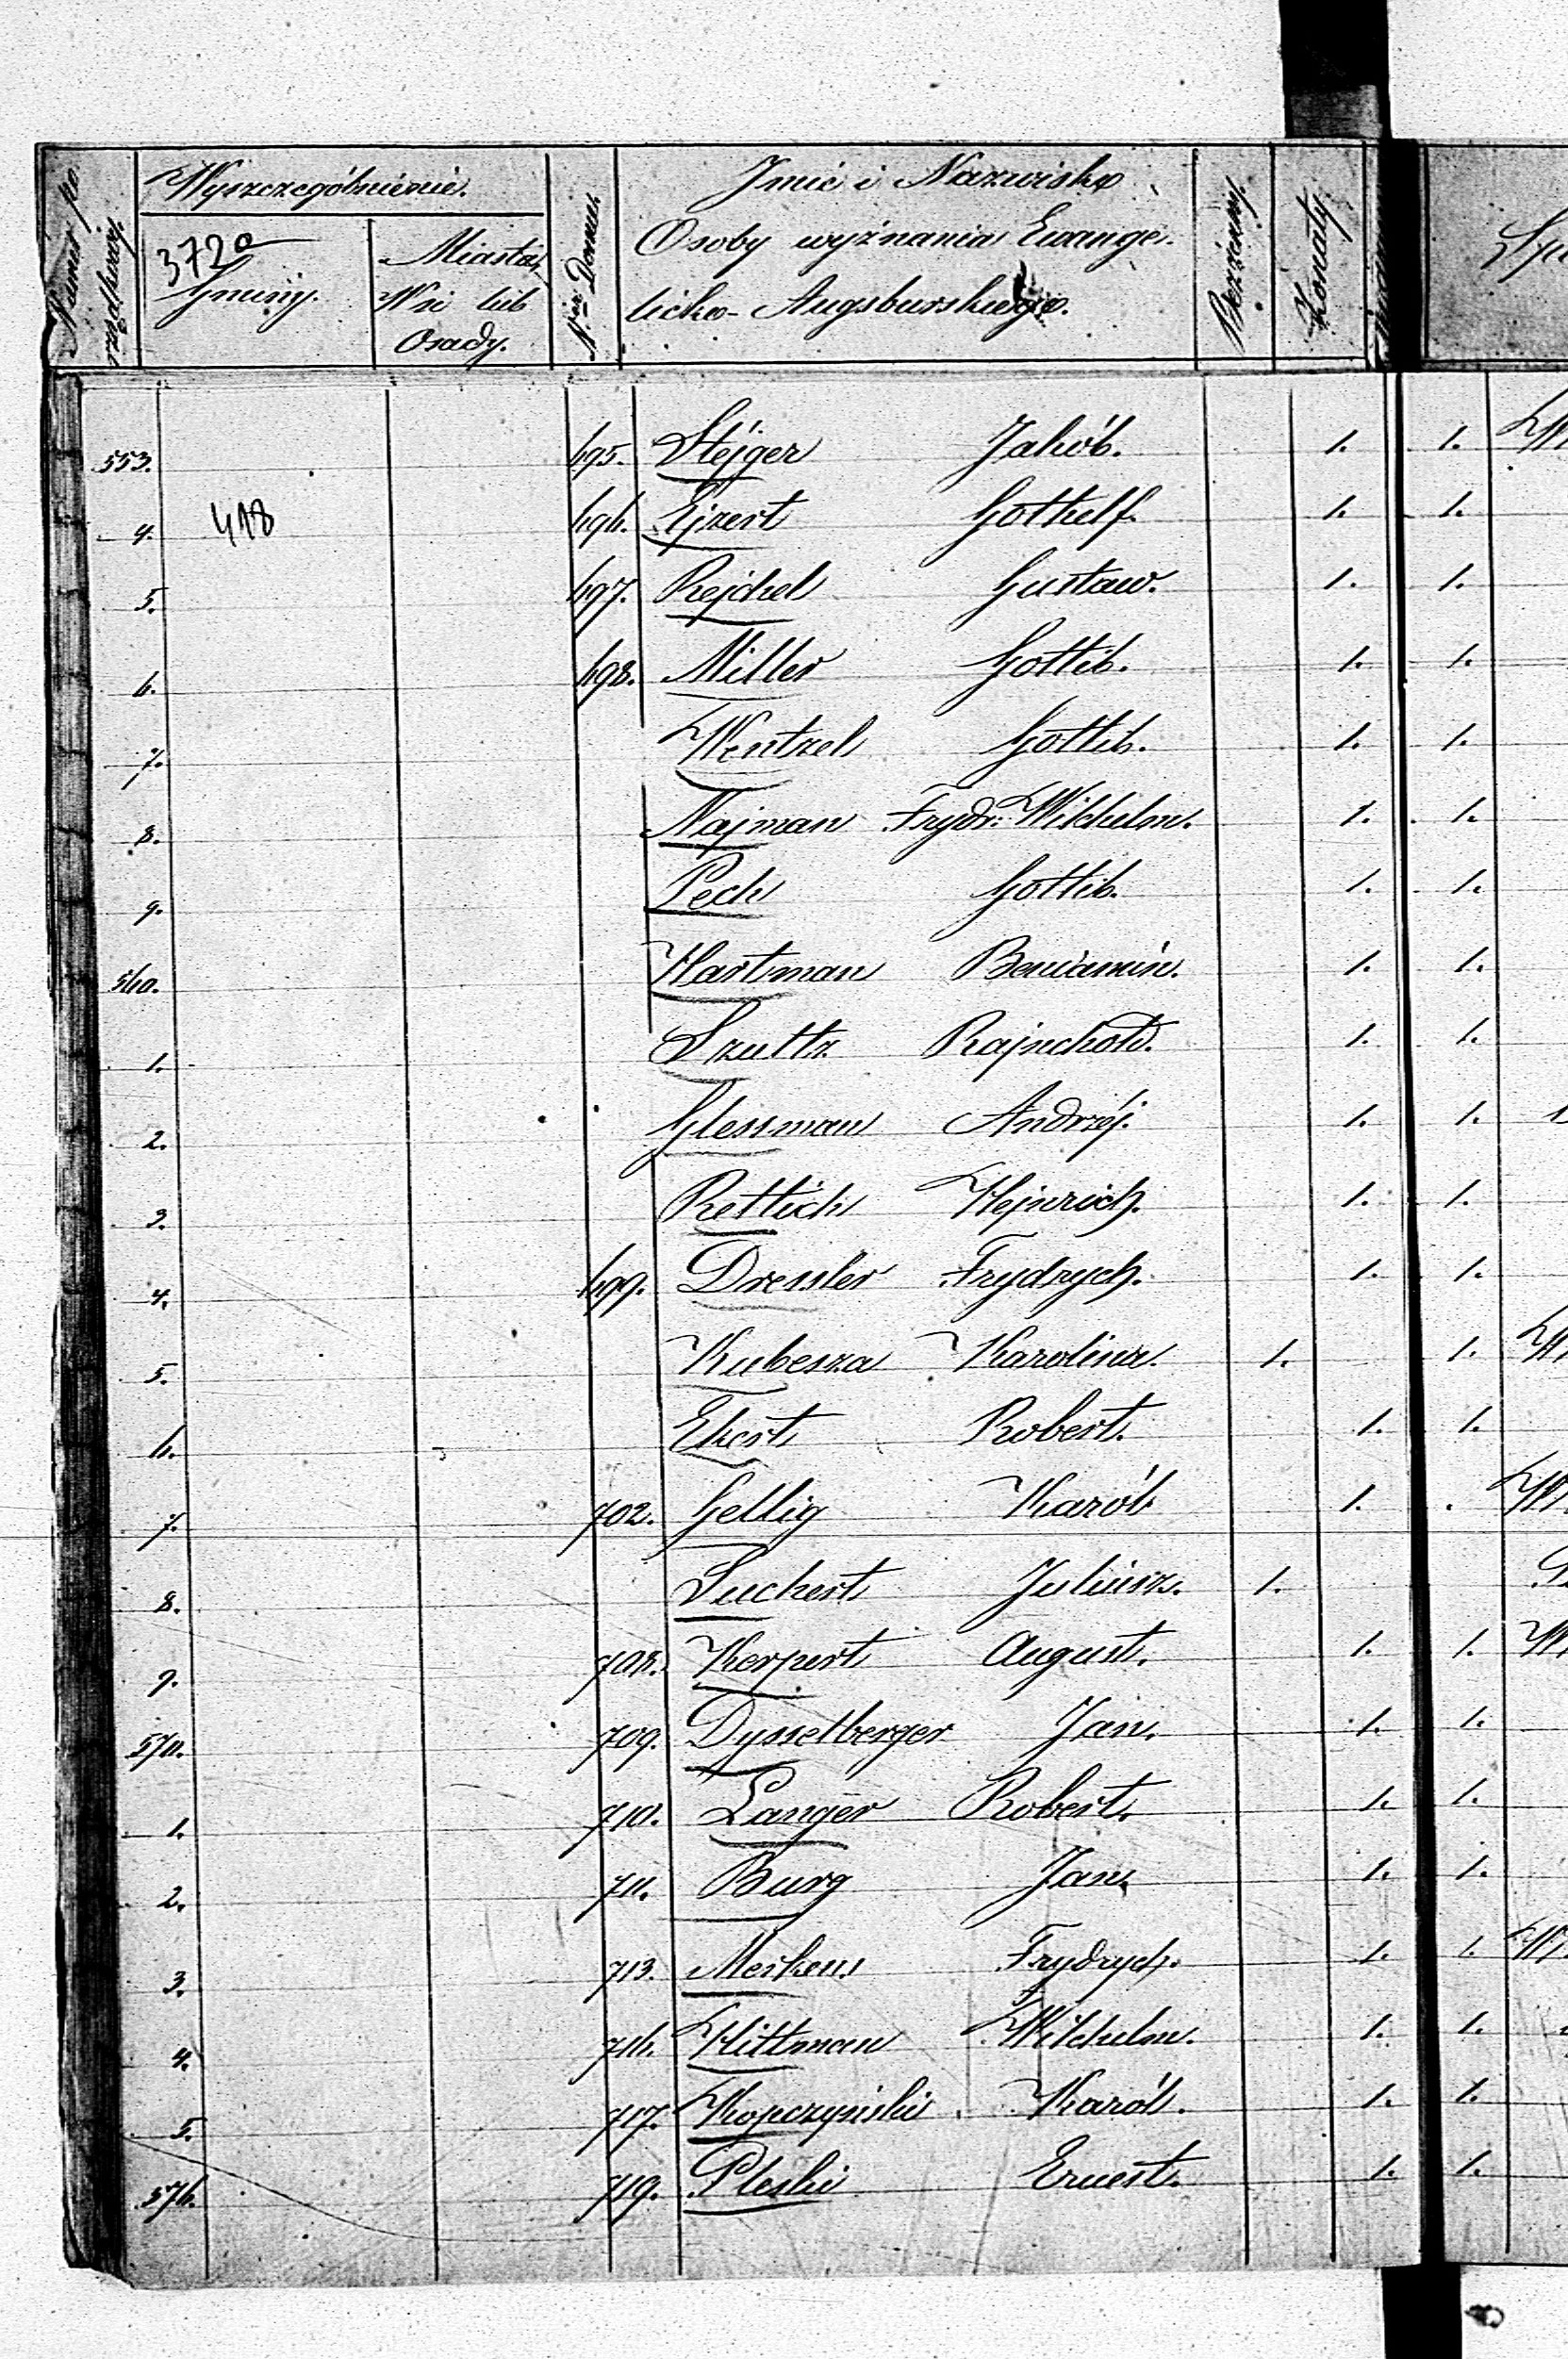 Numer po rządkowy.
Wyszczególnienie.
372a
Gminy.
Miasta,
Wsi lub
Osady.
N.ra Domu.
Imie i Nazwisko
Osoby wyznania Ewange-
licko-Augsburskiego.
Bezżenny.
Żonaty
553. 695. Stéjger Jakób. 1. 1.
4. 418 696. Ejzert Gothelf. 1. 1.
5. 697. Rejchel Gustaw. 1. 1.
6. 698. Miller Gottib. 1. 1.
7. Wentzel Gottib. 1. 1.
8. Najman Frydr: Wilchelm. 1. 1.
9. Pech Gottib. 1. 1.
560. Hartman Beniamin. 1. 1.
1. Szultz Rajnchold. 1. 1.
2. Glessman Andrzéj. 1. 1.
3. Rettich Hejnrich. 1. 1.
4. 699. Dressler Frydrych. 1. 1.
5. Kubesza Karolina. 1. 1.
6. Ekert Robert. 1. 1.
7. 702. Gellig Karól 1.
8. Suchert Juliusz. 1.
9. 708. Kerpert August. 1. 1.
570. 709. Dysselberger Jan. 1. 1.
1. 710. Langer Robert. 1. 1.
2. 711. Burg Jan. 1. 1.
3. 713. Merkens Frydrych. 1. 1.
4. 716. Hittman Wilchelm. 1. 1.
5. 717. Kopczyński Karól. 1. 1.
576. 719. Pleski Ernest. 1. 1.